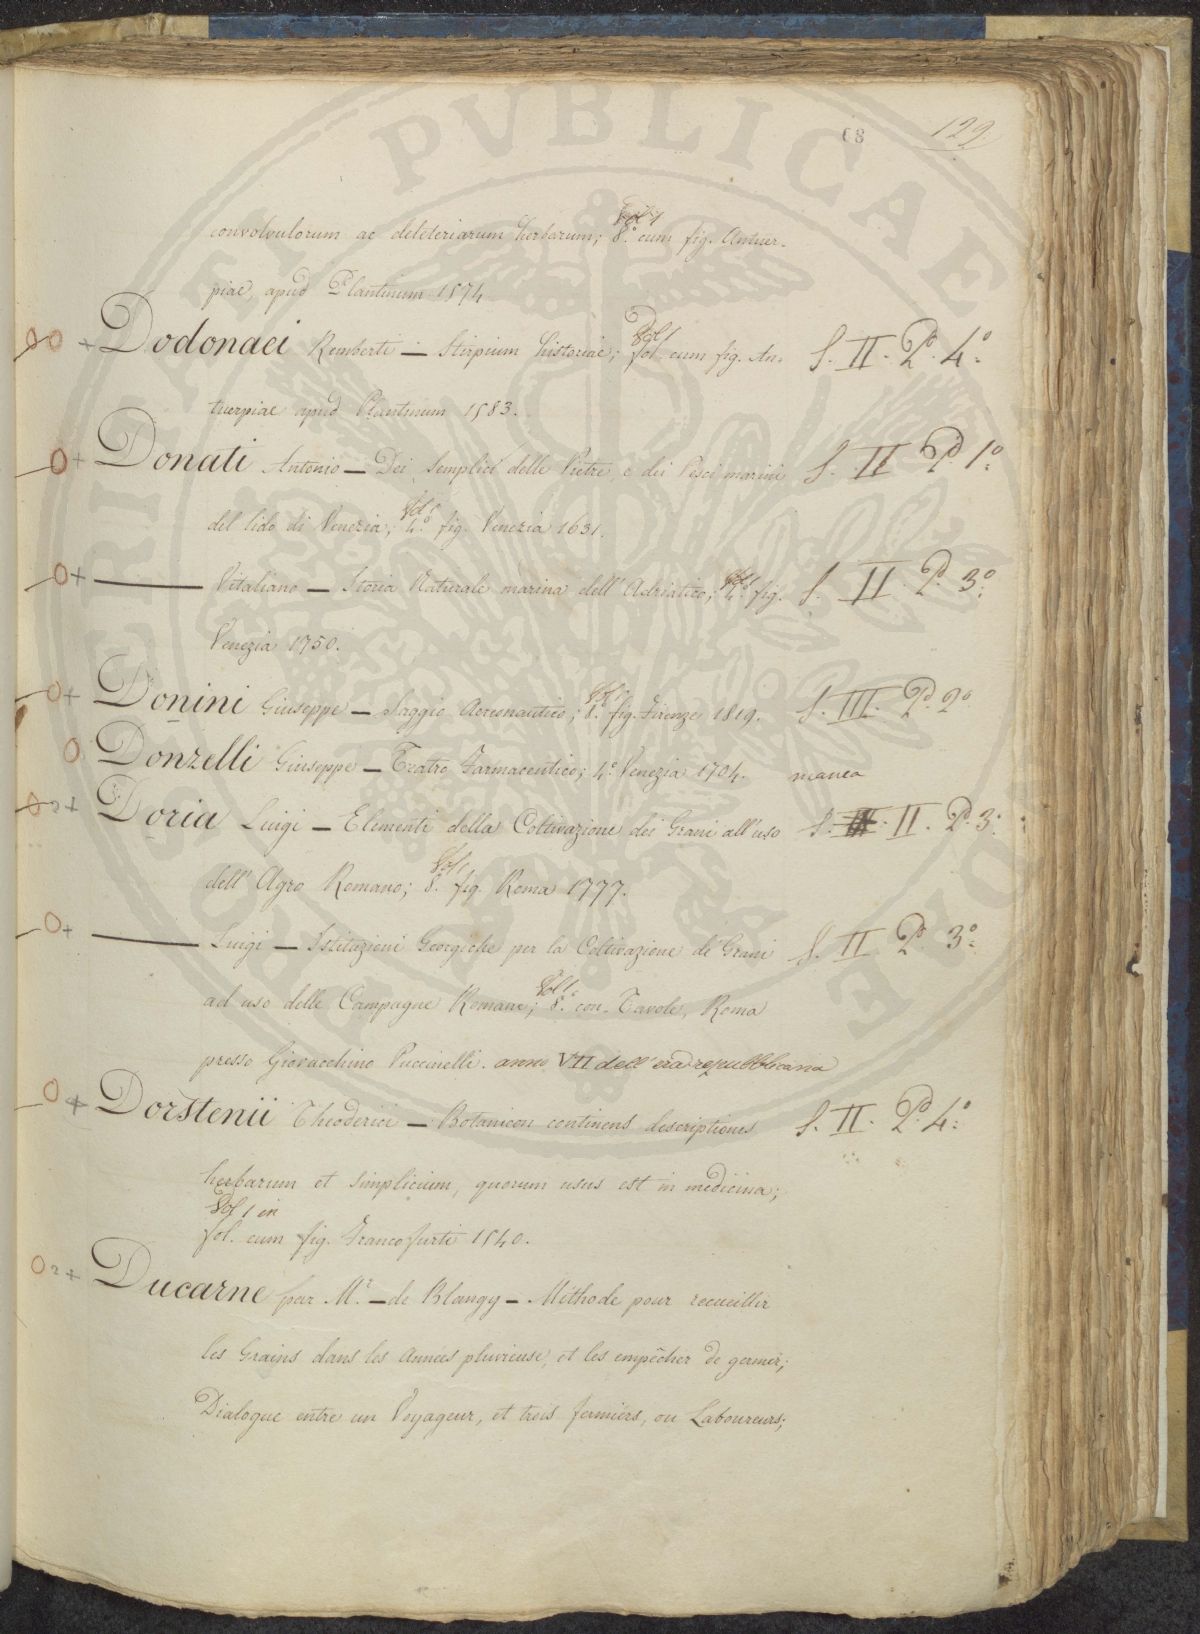 68 129.
convolvulorum ac deleteriarum herbarum; Vol 1 8.° cum fig. Antuer-
piae, apud Plantinum 1574
Dodonaei Remberti — Stirpium historiae; Vol 1 fol. cum fig. An- S. II. P. 4°
tuerpiae apud Plantinum 1583.
Donati Antonio — Dei Semplici delle Pietre, e dei Pesci marini S. II P. 1°
del lido di Venezia; Vol 1 4.° fig. Venezia 1631.
Vitaliano — Storia Naturale marina dell' Adriatico; Vol 1 4.° fig. S. II. P. 3°
Venezia 1750.
Donini Giuseppe — Saggio Aereonautico; Vol 1 8.° fig. Firenze 1819. S. III. P. 2°
Donzelli Giuseppe — Teatro Farmaceutico; 4.° Venezia 1704. manca
Doria Luigi — Elementi della Coltivazione dei Grani all'uso S. II. P. 3°
dell' Agro Romano; Vol 1 8.° fig. Roma 1777.
Luigi — Istituzioni Georgiche per la Coltivazione de' Grani S. II P. 3°
ad uso delle Campagne Romane; Vol 1. 8.° con Tavole, Roma
presso Giovacchino Puccinelli. anno VII dell' era repubblicana
Dorstenii Theoderici — Botanicon continens descriptiones S. II. P. 4°
herbarum et simplicium, quorum usus est in medicina;
Vol 1 in
fol. cum fig. Francofurti 1540.
Ducarne par M.r — de Blangy — Méthode pour recueillir
les Grains dans les Années pluvieuse, et les empêcher de germer;
Dialogue entre un Voyageur, et trois fermiers, ou Laboureurs;
PVBLICAE